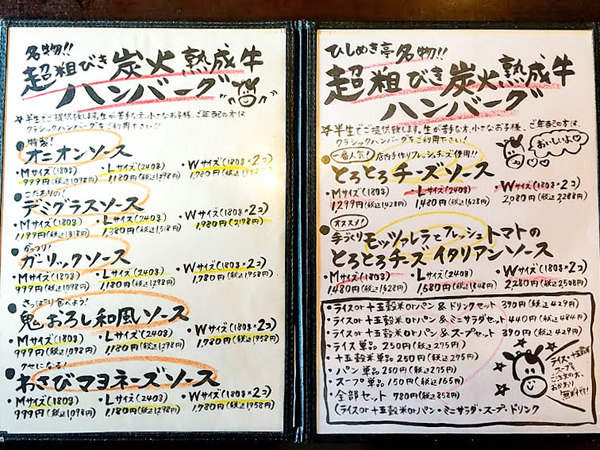 名物!!
超粗びき炭火熟成牛
ハンバーグ
★半生でご提供致します。生が苦手な方、小さなお子様、ご年配の方は、
クラシックハンバーグをご利用下さい!!
特製!
オニオンソース
・Mサイズ(180g) ・Lサイズ(240g) ・Wサイズ(180g×2コ)
999円(税込1098円) 1,180円(税込1298円) 1,780円(税込1958円)
こだわりの!
デミグラスソース
・Mサイズ(180g) ・Lサイズ(240g) ・Wサイズ(180g×2コ)
1199円(税込1318円) 1,380円(税込1518円) 1,980円(税込2178円)
がっつり!
ガーリックソース
・Mサイズ(180g) ・Lサイズ(240g) ・Wサイズ(180g×2コ)
999円(税込1098円) 1,180円(税込1298円) 1,780円(税込1958円)
さっぱり食べよう!
鬼おろし和風ソース
・Mサイズ(180g) ・Lサイズ(240g) ・Wサイズ(180g×2コ)
999円(税込1098円) 1,180円(税込1298円) 1,780円(税込1958円)
クセになる!
わさびマヨネーズソース
・Mサイズ(180g) ・Lサイズ(240g) ・Wサイズ(180g×2コ)
999円(税込1098円) 1,180円(税込1298円) 1,780円(税込1958円)
ひしめき亭名物!!
超粗びき炭火熟成牛
ハンバーグ
★半生でご提供致します。生が苦手な方、小さなお子様、ご年配の方は、
クラシックハンバーグをご利用下さい!
おいしいよ♡
一番人気! 店内手作りフレッシュチーズ使用!!
とろとろチーズソース
・Mサイズ(180g) ・Lサイズ(240g) ・Wサイズ(180g×2コ)
1,299円(税込1428円) 1,480円(税込1628円) 2,080円(税込2288円)
オススメ!
手づくりモッツァレラとフレッシュトマトの
とろとろチーズイタリアンソース
・Mサイズ(180g) ・Lサイズ(240g) ・Wサイズ(180g×2コ)
1480円(税込1628円) 1,680円(税込1848円) 2280円(税込2508円)
・ライスor十五穀米orパン&ドリンクセット 390円(税込429円)
・ライスor十五穀米orパン&ミニサラダセット 440円(税込484円)
・ライスor十五穀米orパン&スープセット 390円(税込429円)
・ライス単品 250円(税込275円)
・十五穀米単品 250円(税込275円)
・パン単品 250円(税込275円)
・スープ単品 150円(税込165円)
・全部セット 780円(税込858円)
(ライスor十五穀米orパン・ミニサラダ・スープ・ドリンク
ライス・十五穀米
スープを
ご注文の方、
おかわり
無料です!